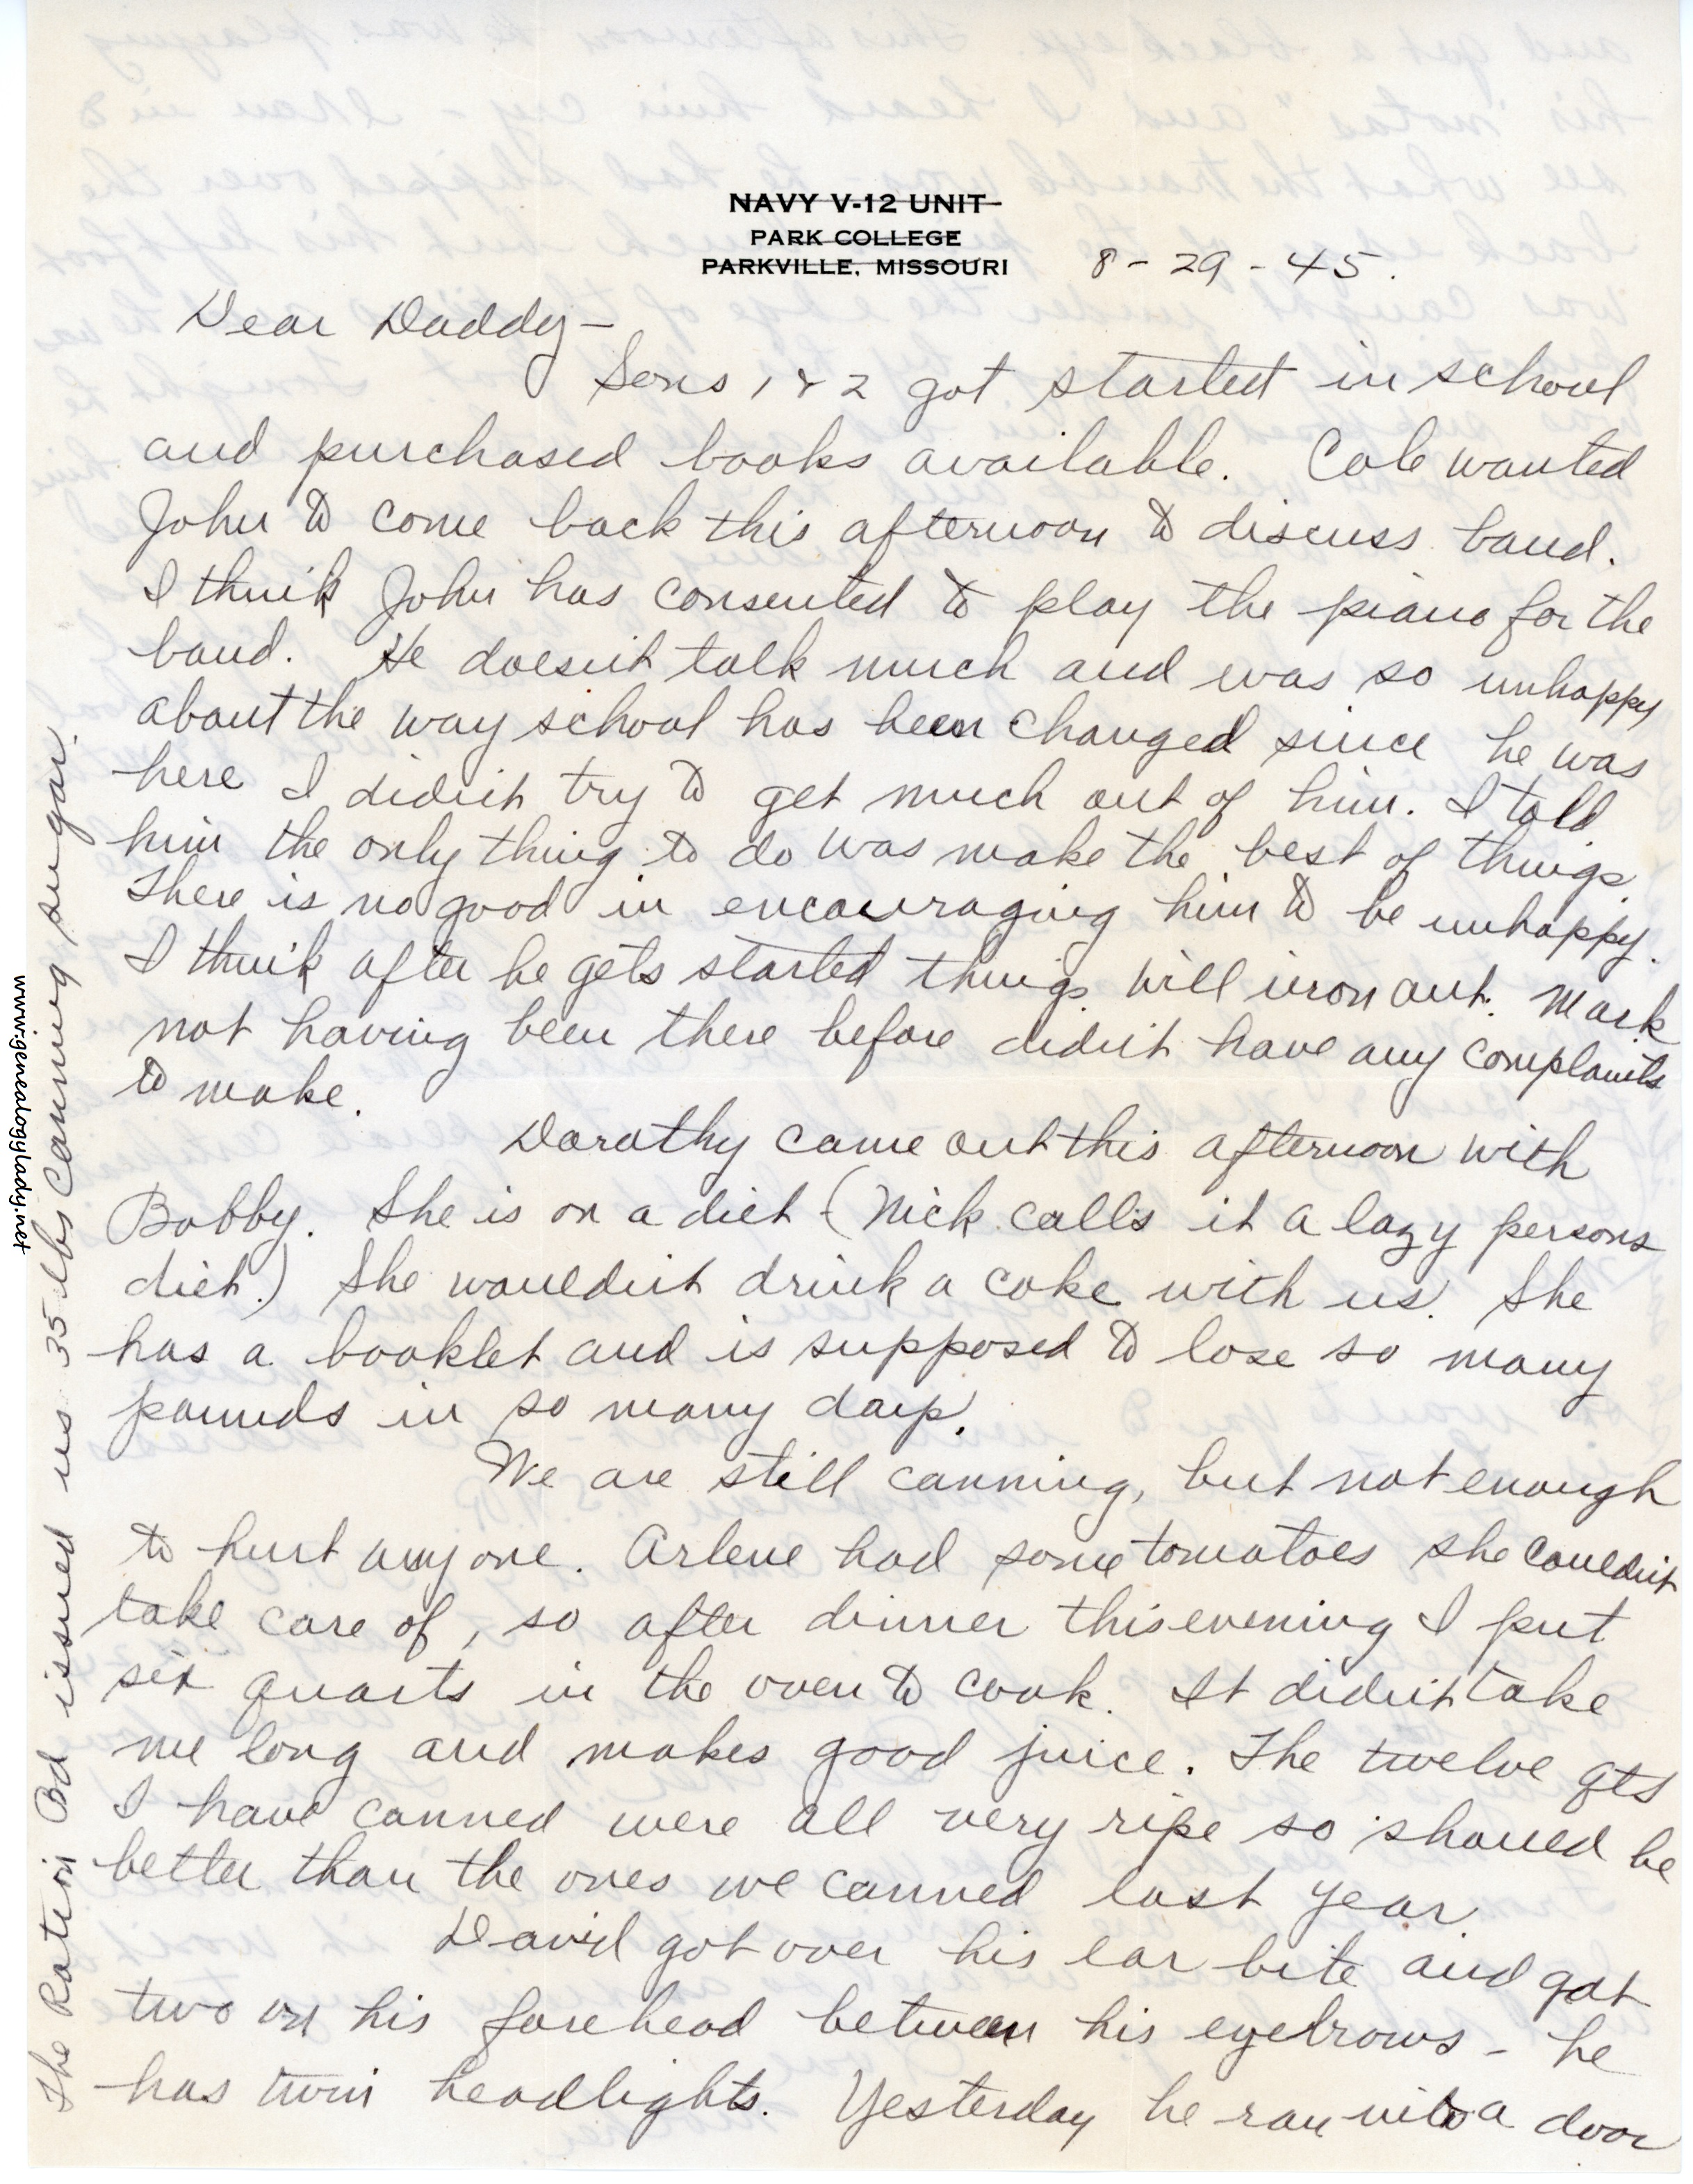 NAVY V-12 UNIT
PARK COLLEGE
PARKVILLE, MISSOURI
8-29-45.
Dear Daddy-
Sons 1 & 2 got started in school
and purchased books available. Cole wanted
John to come back this afternoon to discuss band.
I think John has consented to play the piano for the
band. He doesn't talk much and was so unhappy
about the way school has been changed since he was
here I didn't try to get much out of him. I told
him the only thing to do was make the best of things.
There is no good in encouraging him to be unhappy.
I think after he gets started things will iron out. Mark
not having been there before didn't have any complaints
to make.
Dorothy came out this afternoon with
Bobby. She is on a diet (Nick calls it a lazy persons
diet.) She wouldn't drink a coke with us. She
has a booklet and is supposed to lose so many
pounds in so many days.
We are still canning, but not enough
to hurt anyone. Arlene had some tomatoes she couldn't
take care of, so after dinner this evening I put
six quarts in the oven to cook. It didn't take
me long and makes good juice. The twelve qts
I have canned were all very ripe so should be
better than the ones we canned last year
David got over his ear bite and got
two on his forehead between his eyebrows - he
has twin headlights. Yesterday he ran into a door
The Ration Bd issued us 35 lbs canning sugar.
www.genealogylady.net